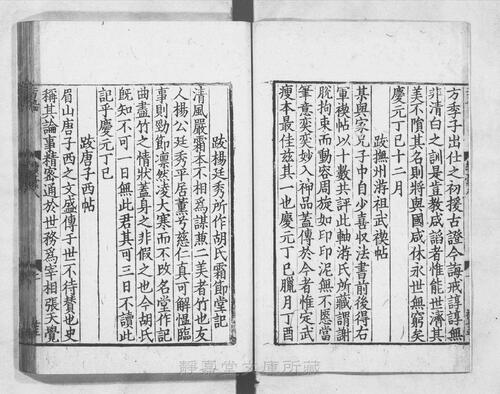 方季子出仕之初援古證今誨戒諄諄無
非清白之訓是直敎咸諂者惟能世濟其
美不隕其名則將與國咸休永世無窮矣
慶元丁巳十二月
跋撫州游祖武禊帖
其與家兄子中自少喜収法書前後得右
軍禊帖以十數共評此軸游氏所藏謂謝
脫拘束而動容周旋如印印泥無不愿當
筆意奕奕妙入神品蓋傳於今者惟定武
瘦本最佳兹其一也慶元丁巳臘月丁酉
跋楊廷秀所作胡氏霜節堂記
清風嚴霜本不相爲謀兼二美者竹也友
人楊公廷秀平居薰兮慈仁眞可解慍臨
事則勁節凛然凌大寒而不攺名堂作記
曲盡竹之情狀蓋身之非假之也今胡氏
既知不可一日無此君其可三日不讀此
記乎慶元丁巳
跋唐子西帖
眉山唐子西之文盛傳于世不待賛也史
稱其論事精密通於世務爲宰相張天覺
靜嘉堂文庫所藏